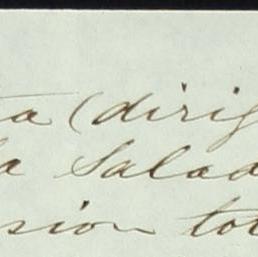 ta (dirig
la Salad
sion tot